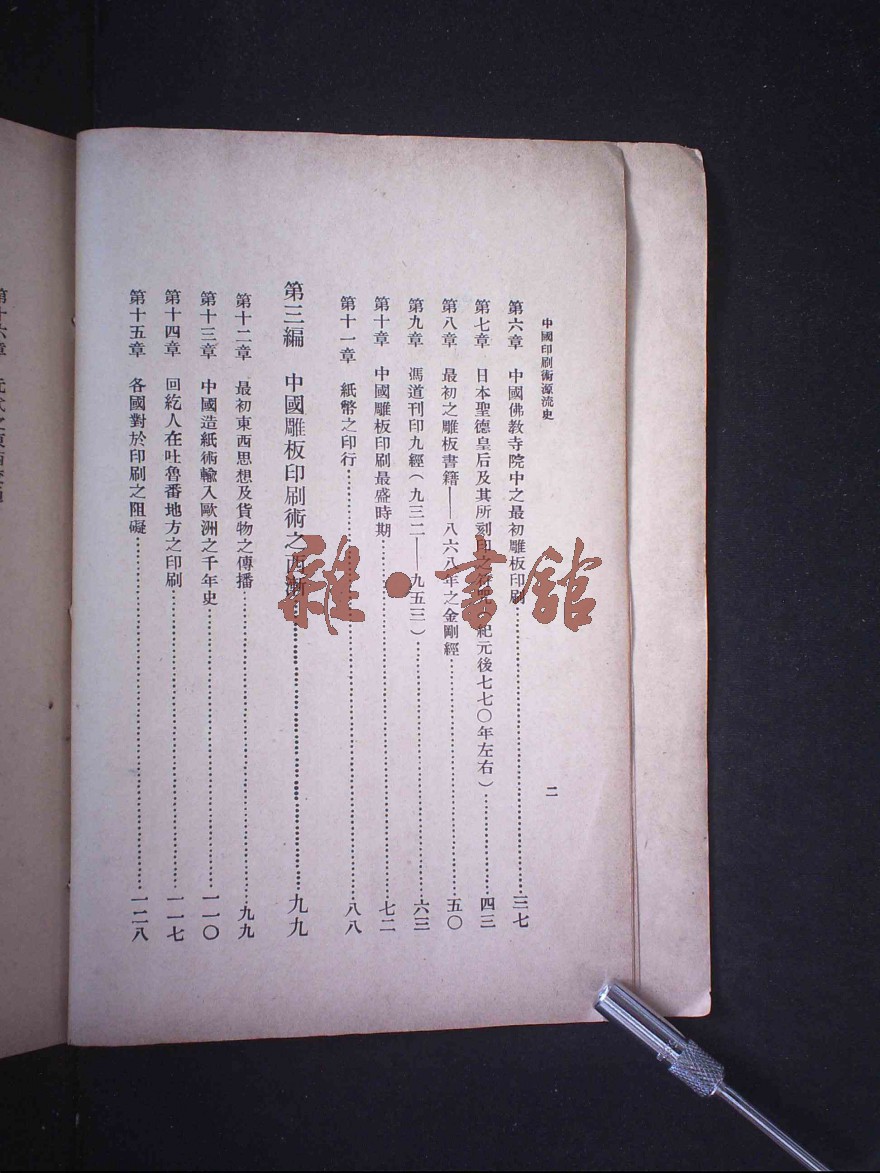 中國印刷術源流史
二
第六章 中國佛教寺院中之最初雕板印刷 三七
第七章 日本聖德皇后及其所刻印之 紀元後七七〇年左右) 四三
第八章 最初之雕板書籍——八六八年之金剛經 五〇
第九章 馮道刊印九經(九三二——九五三) 六三
第十章 中國雕板印刷最盛時期 七二
第十一章 紙幣之印行 八八
第三編 中國雕板印刷術之西漸 九九
第十二章 最初東西思想及貨物之傳播 九九
第十三章 中國造紙術輸入歐洲之千年史 一一〇
第十四章 回紇人在吐魯番地方之印刷 一一七
第十五章 各國對於印刷之阻礙 一二八
第十六章
雜·書館